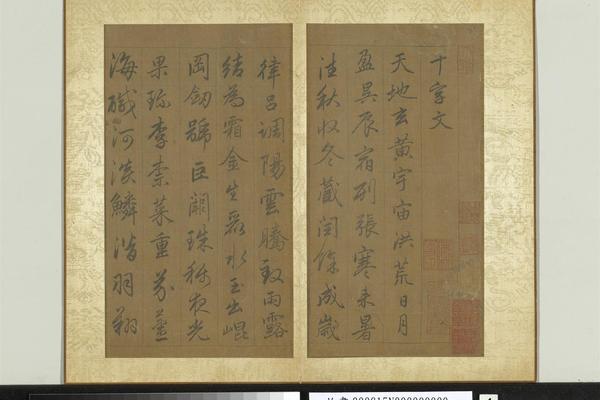 千字文
天地玄黃宇宙洪荒日月
盈昃辰宿列張寒來暑
往秋收冬藏閏餘成歲
律呂調陽雲騰致雨露
結為霜金生麗水玉出崐
岡劒號巨闕珠稱夜光
果珍李柰菜重芥薑
海醎河淡鱗潛羽翔